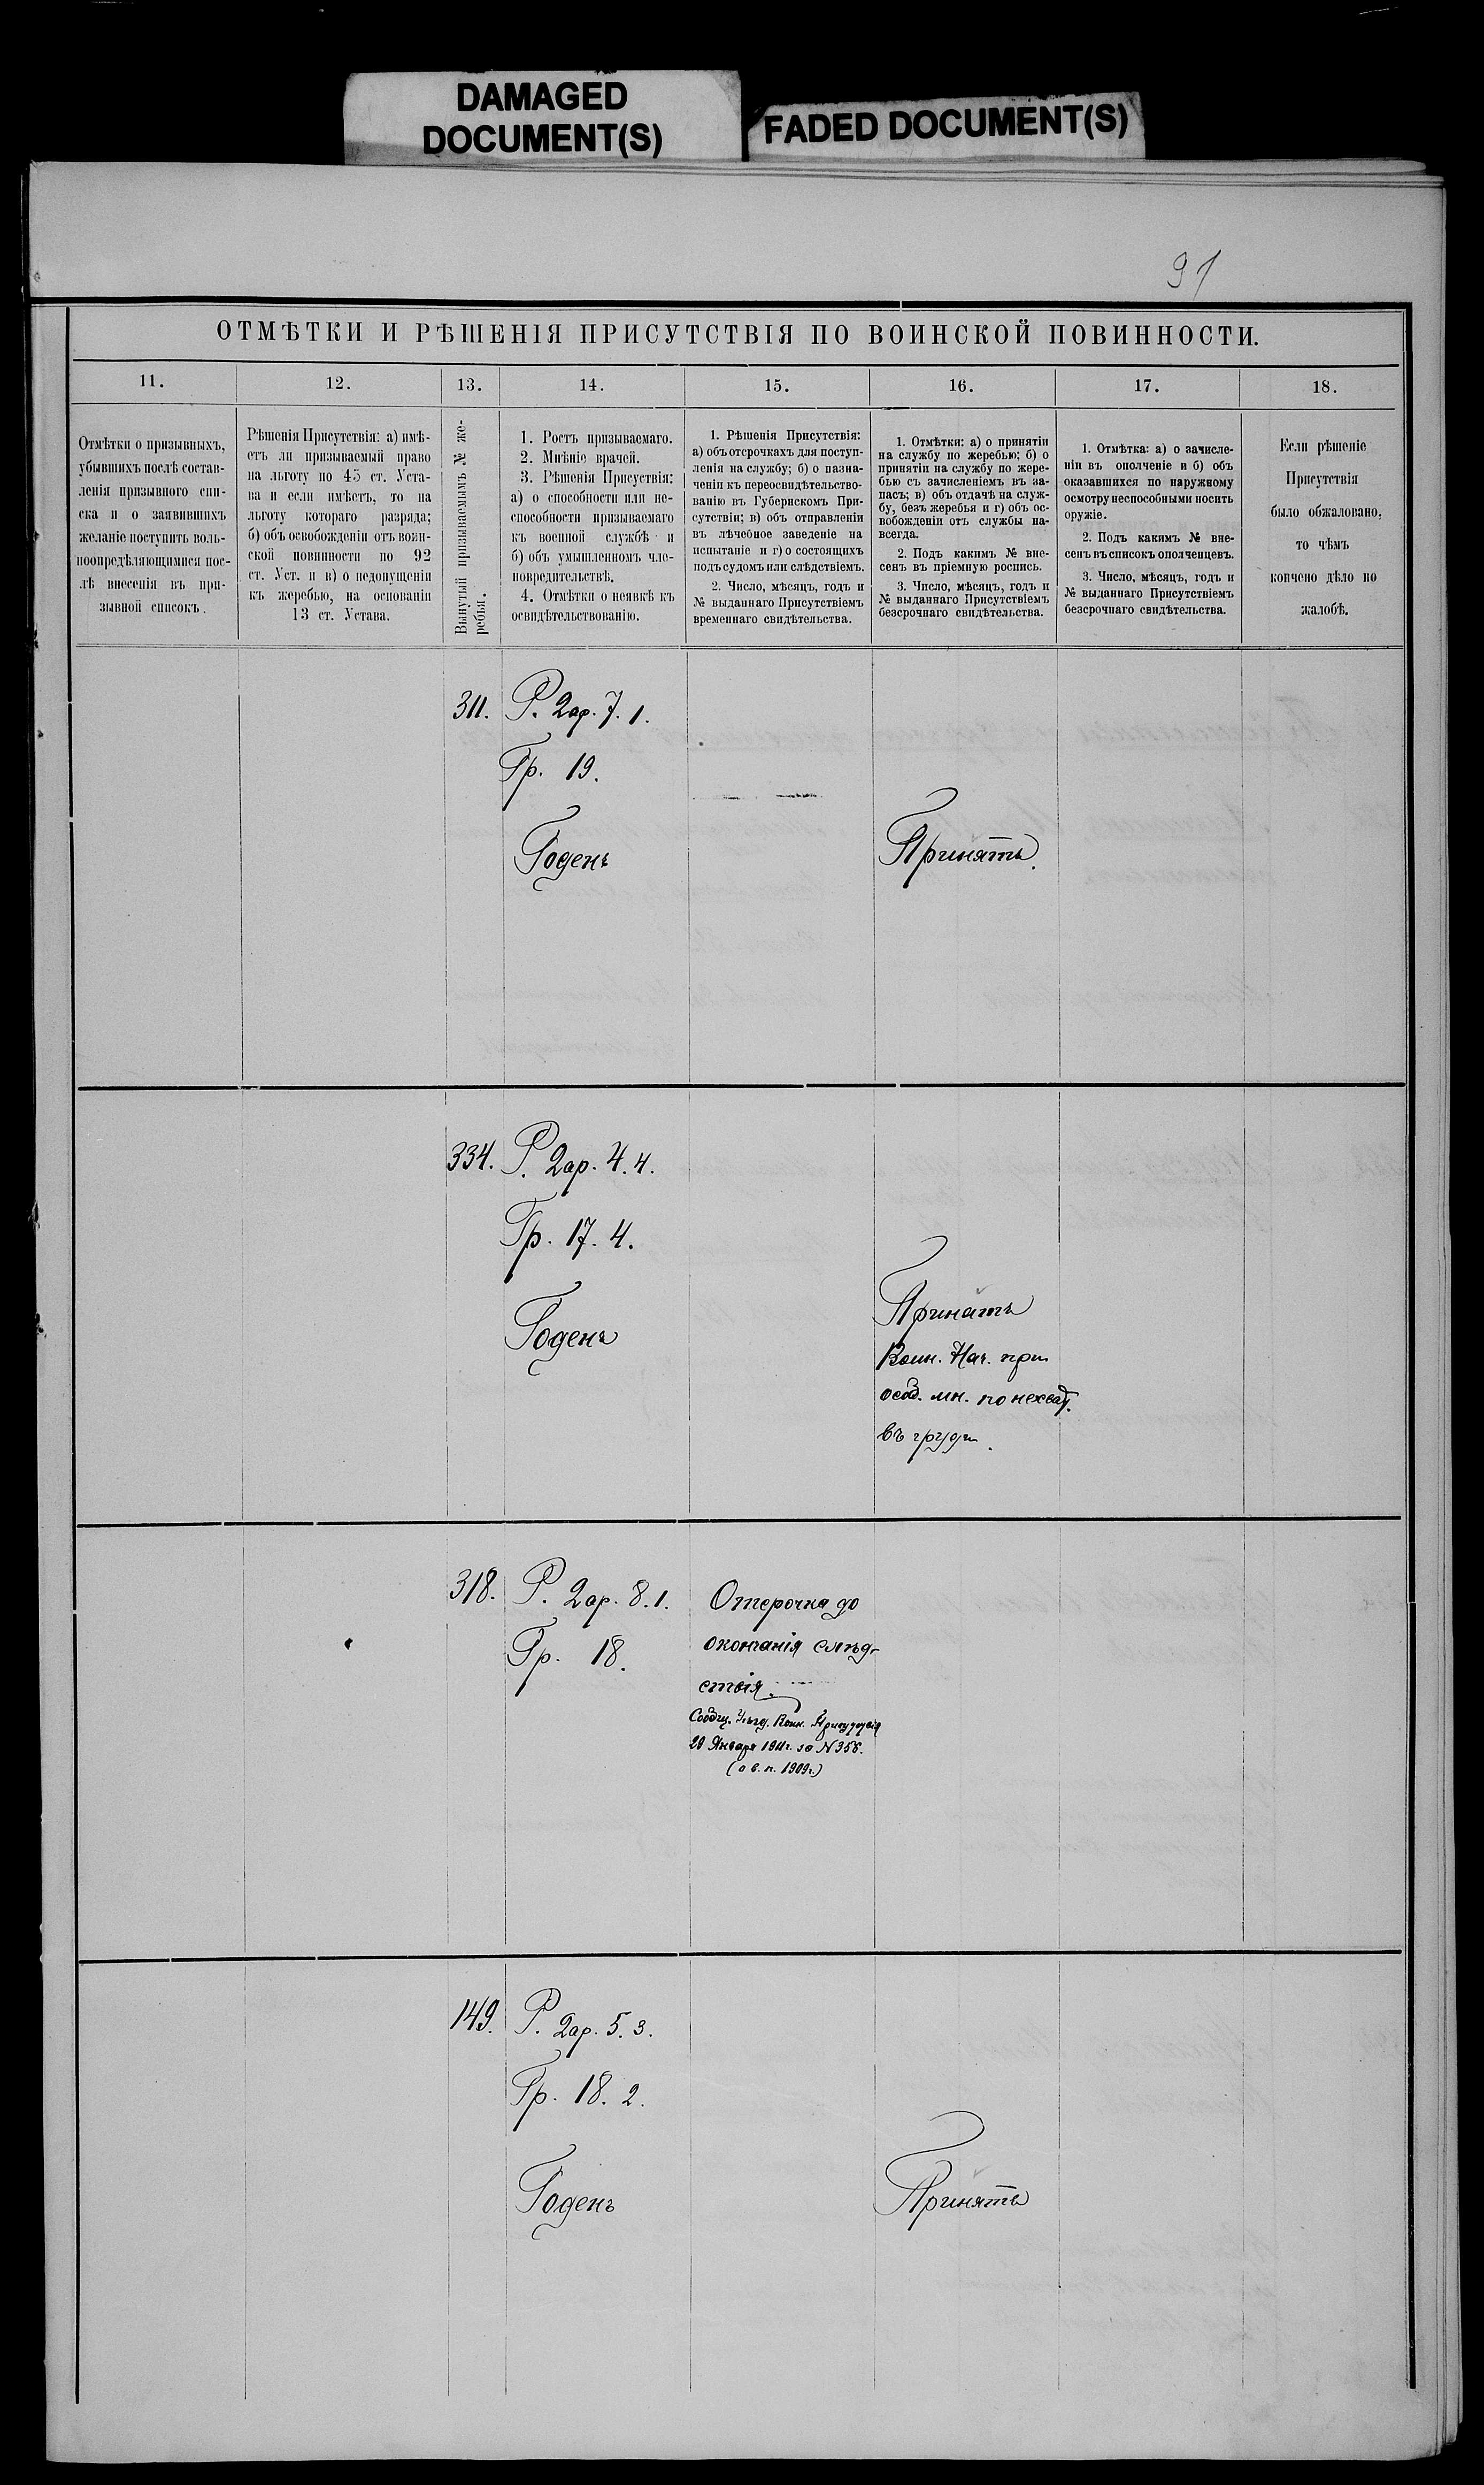 DAMAGED
DOCUMENT(S)
FADED DOCUMENT(S)
91
ОТМѢТКИ И РѢШЕНІЯ ПРИСУТСТВІЯ ПО ВОИНСКОЙ ПОВИННОСТИ.
11.
12.
13.
14.
15.
16.
17.
18.
Отмѣтки о призывныхъ,
убывшихъ послѣ состав-
ленія призывного спи-
ска и о заявившихъ
желаніе поступить воль-
ноопредѣляющимися пос-
лѣ внесенія въ при-
зывной списокъ.
Рѣшенія Присутствія: а) имѣ-
етъ ли призываемый право
на льготу по 45 ст. Уста-
ва и если имѣетъ, то на
льготу котораго разряда;
б) объ освобожденіи отъ воин-
ской повинности по 92
ст. Уст. и в) о недопущеніи
къ жеребью, на основаніи
13 ст. Устава.
Вынутый призываемымъ № же-
ребья.
1. Ростъ призываемаго.
2. Мнѣніе врачей.
3. Рѣшенія Присуствія:
а) о способности или не-
способности призываемаго
къ военной службѣ и
б) объ умышленномъ чле-
новредительствѣ.
4. Отмѣтки о неявкѣ къ
освидѣтельствованію.
1. Рѣшенія Присутствія:
а) объ отсрочкахъ для поступ-
ленія на службу; б) о назна-
ченіи къ переосвидѣтельство-
ванію въ Губернскомъ При-
сутствіи; в) объ отправленіи
въ лѣчебное заведеніе на
испытаніе и г) о состоящихъ
подъ судомъ или слѣдствіемъ.
2. Число, мѣсяцъ, годъ и
№ выданнаго Присутствіемъ
временнаго свидѣтельства.
1. Отмѣтки: а) о принятіи
на службу по жеребью; б) о
принятіи на службу по жере-
бью съ зачисленіемъ въ за-
пасъ; в) объ отдачѣ на служ-
бу, безъ жеребья и г) объ ос-
вобожденіи отъ службы на-
всегда.
2. Подъ какимъ № вне-
сенъ въ пріемную роспись.
3. Число, мѣсяцъ, годъ и
№ выданнаго Присутствіемъ
безсрочнаго свидѣтельства.
1. Отмѣтка: а) о зачисле-
ніи въ ополченіе и б) объ
оказавшихся по наружному
осмотру неспособными носить
оружіе.
2. Подъ какимъ № вне-
сенъ въ списокъ ополченцевъ.
3. Число, мѣсяцъ, годъ и
№ выданнаго Присутствіемъ
безсрочнаго свидѣтельства.
Если рѣшеніе
Присутствія
было обжаловано,
то чѣмъ
кончено дѣло по
жалобѣ.
311.
Р. 2ар. 7. 1.
Гр. 19.
Годенъ
Принятъ.
334.
Р. 2ар. 4. 4.
Гр. 17. 4.
Годенъ
Принятъ
Воин. Нач. при
особ. мн. по нехват.
въ груди.
318.
Р. 2ар. 8. 1.
Гр. 18.
Отсрочка до
окончанія слѣд-
ствія.
Сообщ. Уѣзд. Воин. Присутствія
20 Января 1911г. за № 358.
(о в. п. 1909г.)
149.
Р. 2ар. 5. 3.
Гр. 18. 2.
Годенъ
Принятъ